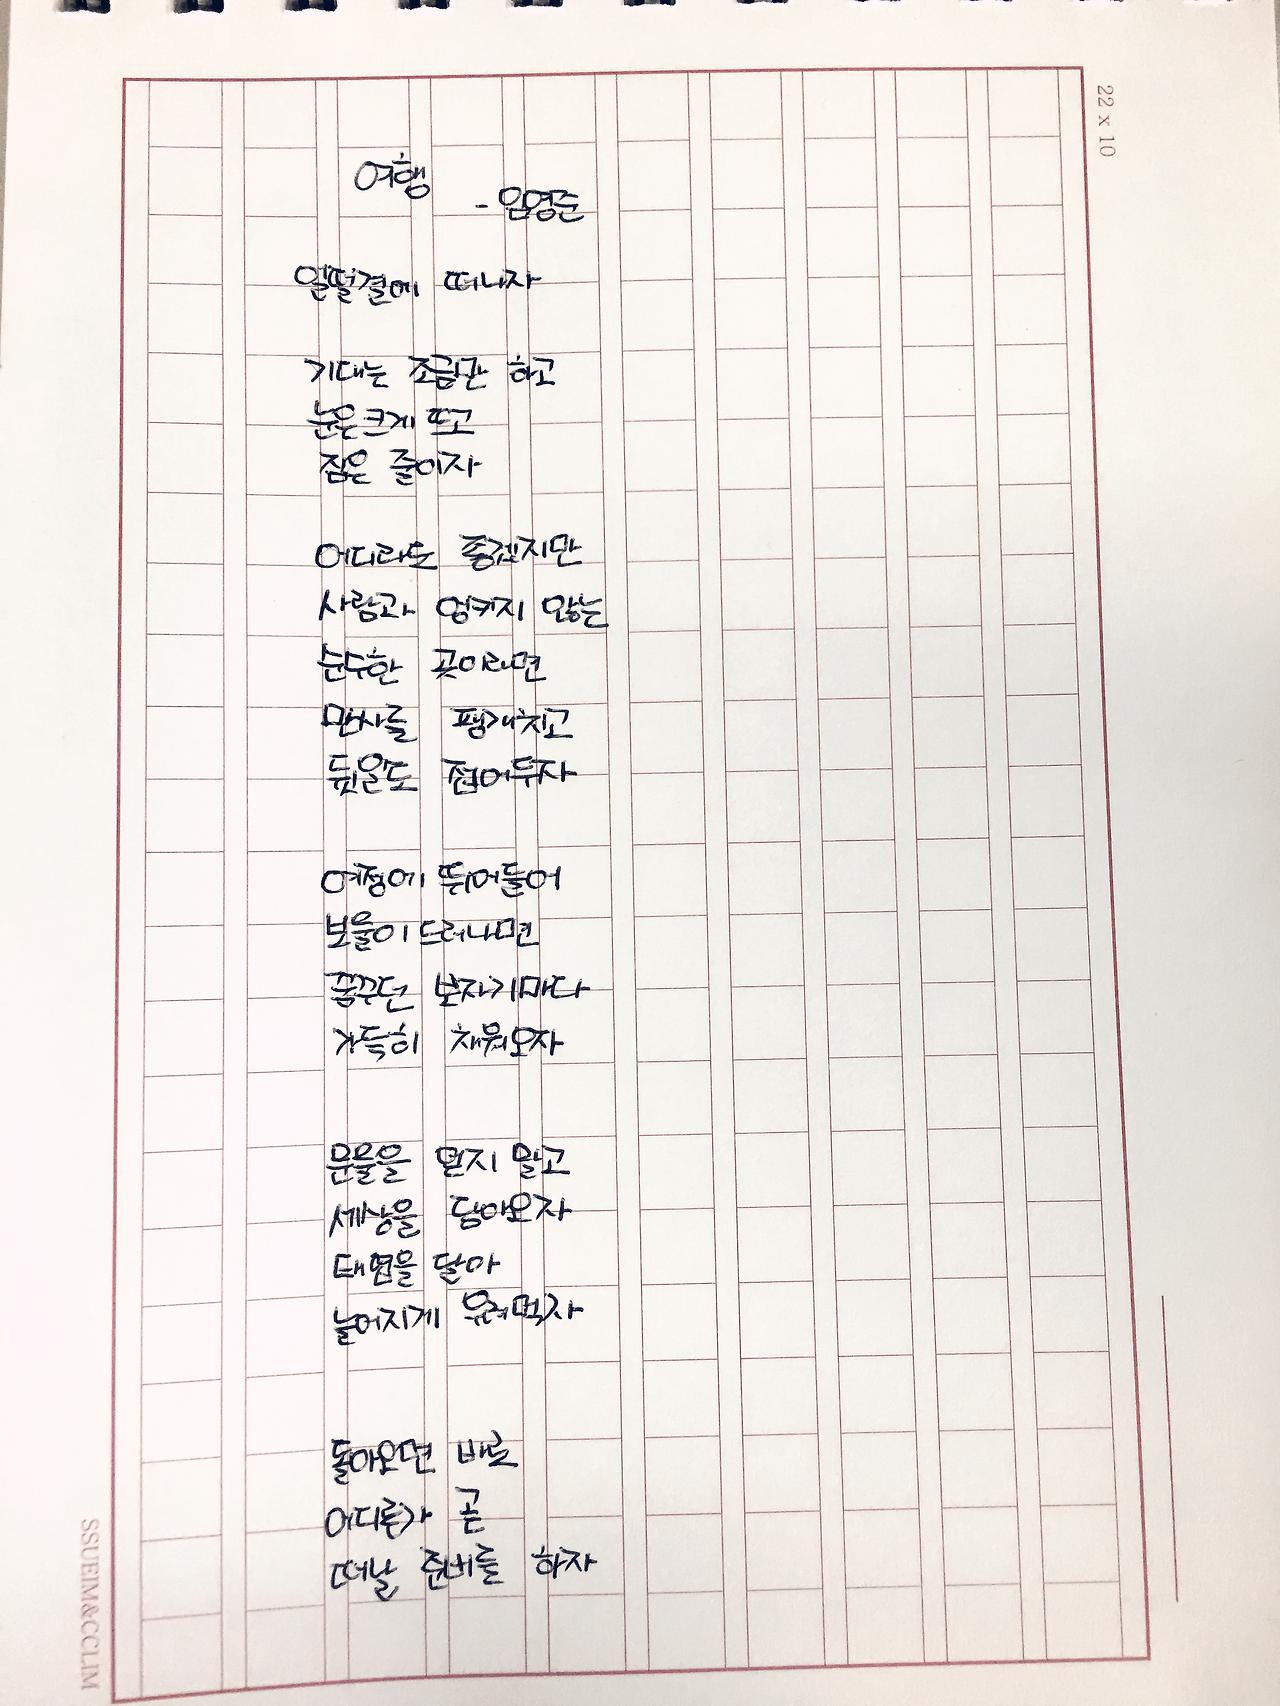 22 x 10
여행
- 임영준
얼떨결에 떠나자
기대는 조금만 하고
눈은 크게 뜨고
짐은 줄이자
어디라도 좋겠지만
사람과 엉키지 않는
순수한 곳이라면
만사를 팽개치고
뒷일도 접어두자
여정에 뛰어들어
보물이 드러나면
꿈꾸던 보자기마다
가득히 채워오자
문물을 믿지 말고
세상을 담아오자
태엽을 달아
늘어지게 우려먹자
돌아오면 바로
어디론가 곧
떠날 준비를 하자
SSUEIM&CCLIM